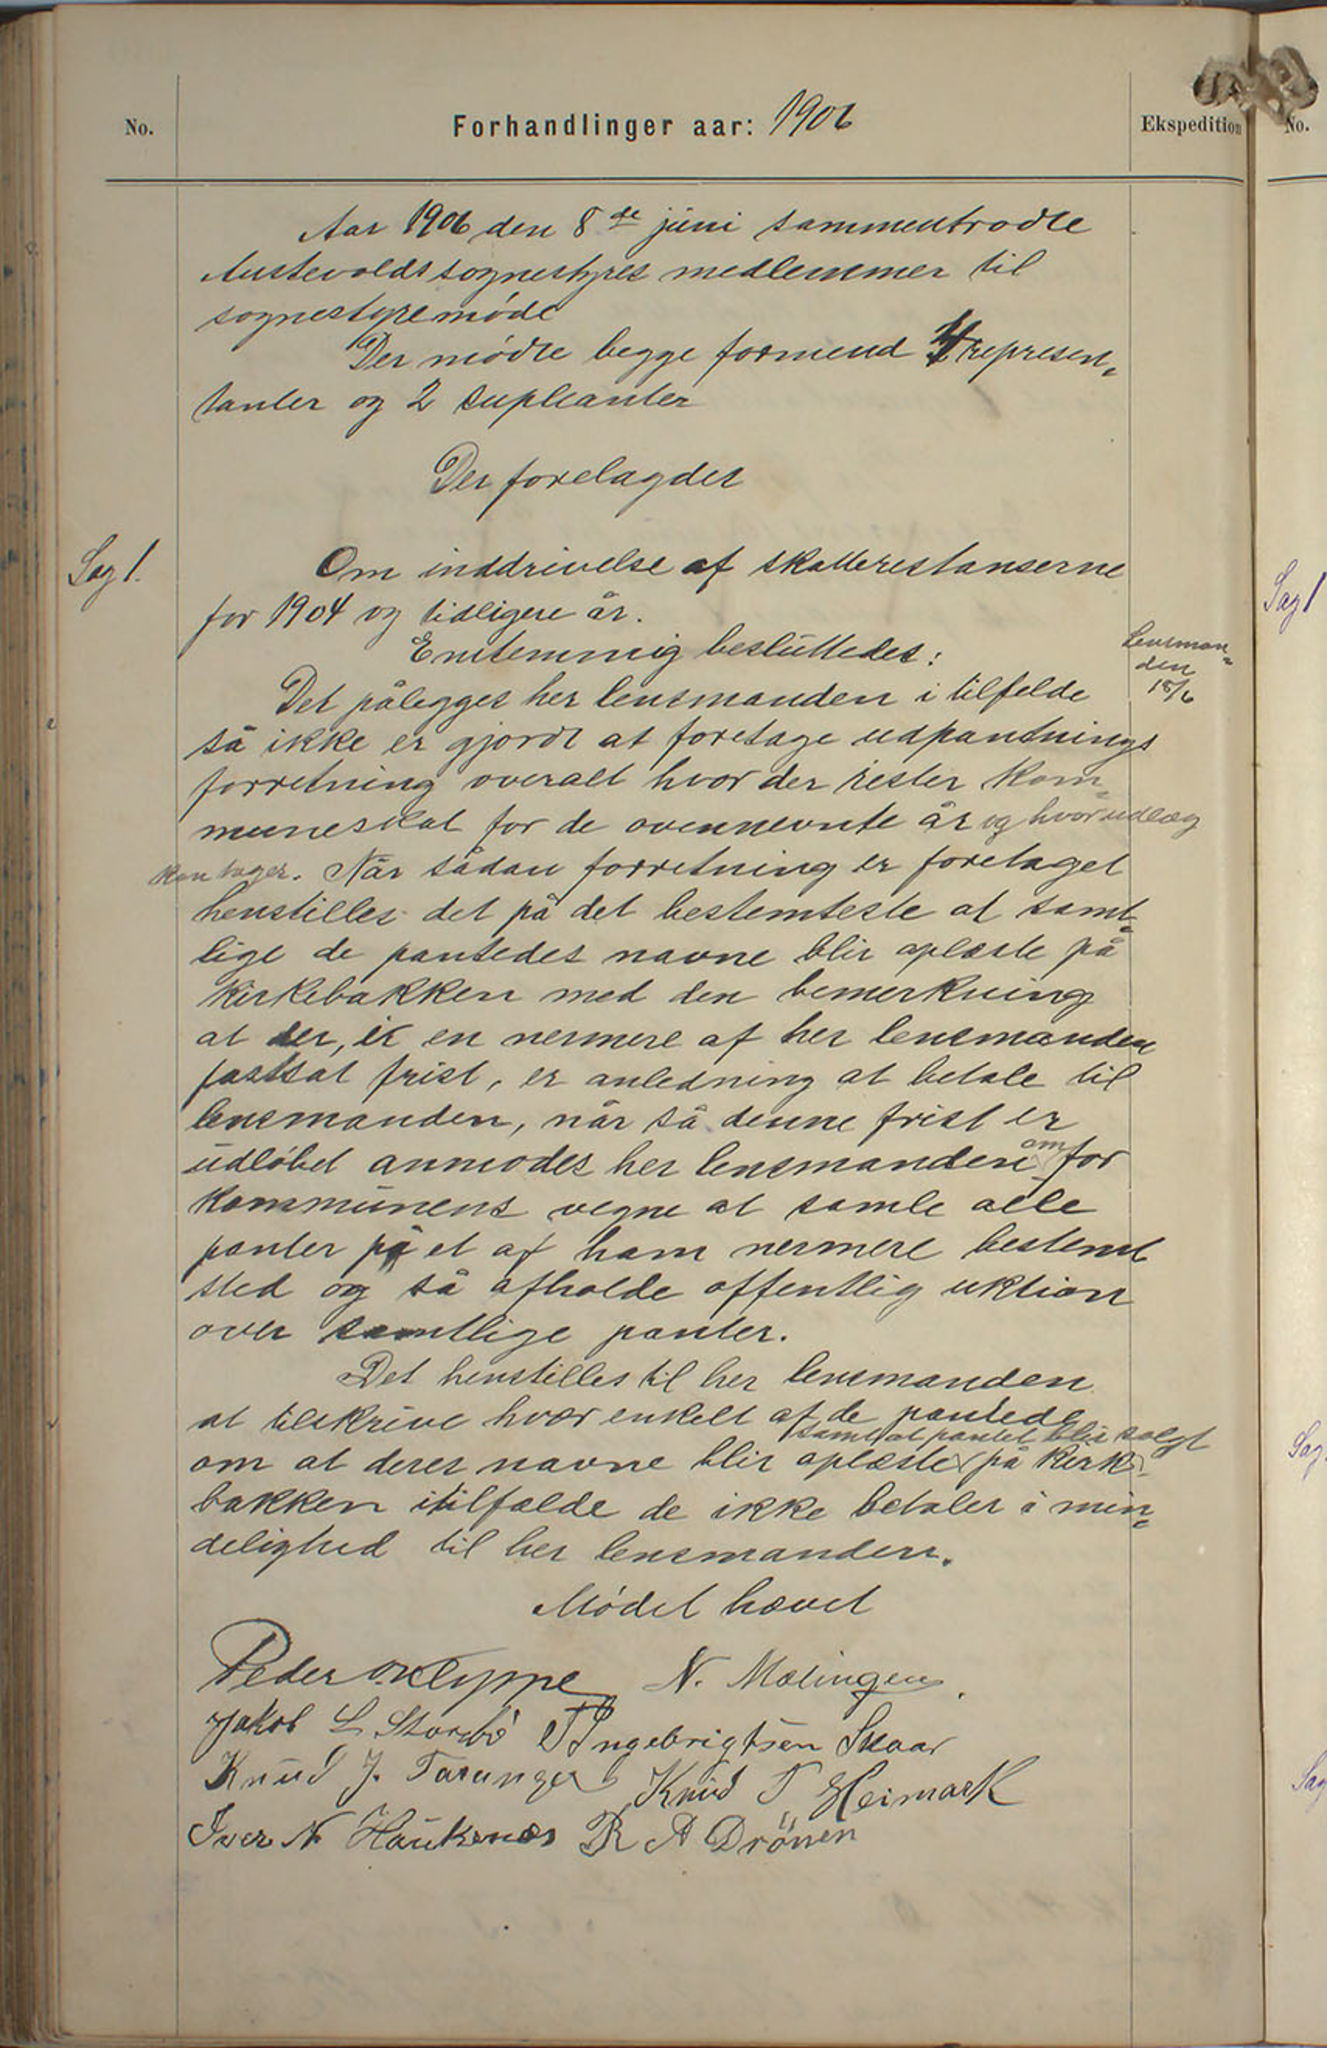 No.
Forhandlinger aar: 1906
Ekspedition
No.
Aar 1906 den 8de juni sammentrodte
Austevolds sognestyres medlemmer til
sognestyremöde
Der mödte begge formend 4 represen„
tanter og 2 supleanter
Der forelagdes
Sag 1.
Om inddrivelse af skatterestanserne
for 1904 og tidligere år.
Enstemmig besluttedes:
Lensman„
den
18/6
Det pålegges her lensmanden i tilfelde
så ikke er gjordt at foretage udpantnings
forretning overalt hvor der rester kom„
muneskat for de ovennevnte år og hvor udlæg
kan tages. Når sådan forretning er foretaget
henstilles det på det bestemteste at samt„
lige de pantedes navne blir oplæste på
kirkebakken med den bemerkning
at der, i en nermere af her lensmanden
fastsat frist, er anledning at betale til
lensmanden, når så denne frist er
udløbet anmodes her lensmanden om for
kommunens vegne at samle alle
panter på et af ham nermere bestemt
sted og så afholde offentlig uktion
over samtlige panter.
Det henstilles til her lensmanden
at tilskrive hvær enkelt af de pantede
samt at pantet blir solgt
om at deres navne blir oplæste på kirke
bakken itilfælde de ikke betaler i min„
delighed til her lensmanden.
Mödet hævet
Peder Klyppe N. Mælingen.
Jakob L Storebö T Ingebrigtsen Skaar
Knud J. Taranger Knud T Heimark
Iver N Haukenæs R A Drönen
Sag 1
Sag
Sag